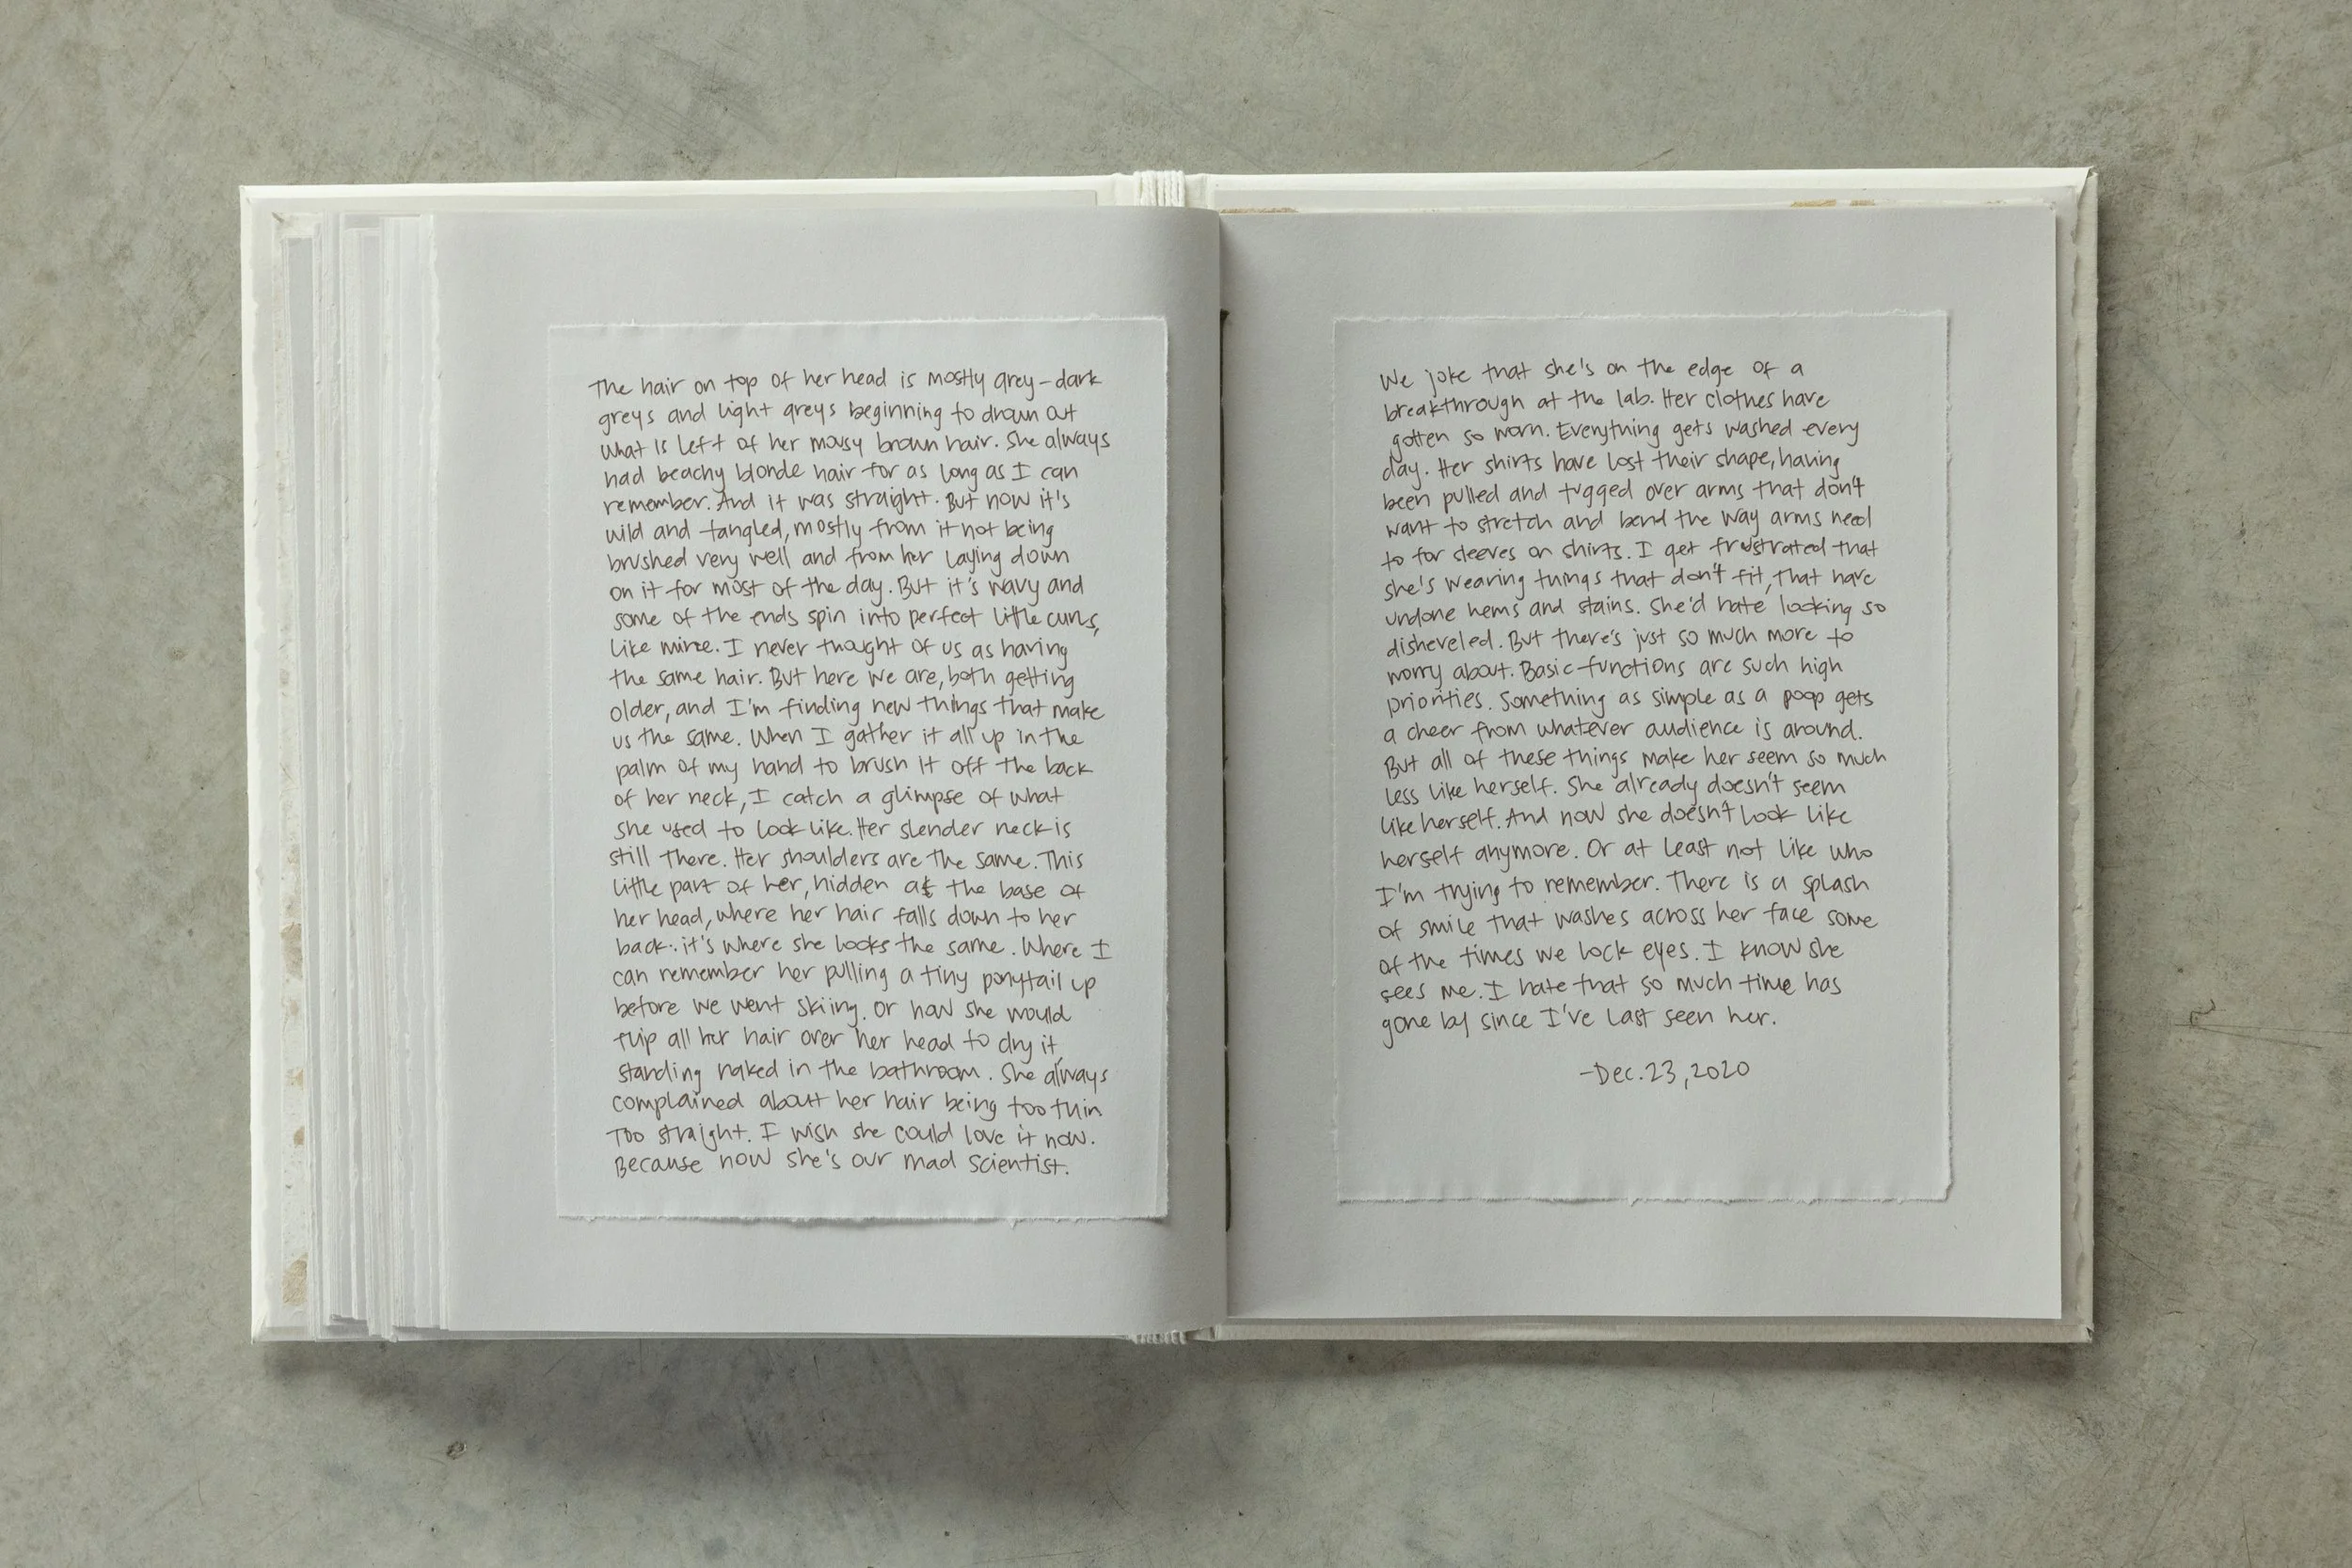 The hair on top of her head is mostly grey – dark
greys and light greys beginning to drown out
what is left of her mousy brown hair. She always
had beachy blonde hair for as long as I can
remember. And it was straight. But now it's
wild and tangled, mostly from it not being
brushed very well and from her laying down
on it for most of the day. But it's wavy and
some of the ends spin into perfect little curls,
like mine. I never thought of us as having
the same hair. But here we are, both getting
older, and I'm finding new things that make
us the same. When I gather it all up in the
palm of my hand to brush it off the back
of her neck, I catch a glimpse of what
she used to look like. Her slender neck is
still there. Her shoulders are the same. This
little part of her, hidden at the base of
her head, where her hair falls down to her
back.. it's where she looks the same. Where I
can remember her pulling a tiny ponytail up
before we went skiing. Or how she would
flip all her hair over her head to dry it,
standing naked in the bathroom. She always
complained about her hair being too thin
too straight. I wish she could love it now.
Because now she's our mad scientist.
We joke that she's on the edge of a
breakthrough at the lab. Her clothes have
gotten so worn. Everything gets washed every
day. Her shirts have lost their shape, having
been pulled and tugged over arms that don't
want to stretch and bend the way arms need
to for sleeves on shirts. I get frustrated that
she's wearing things that don't fit, that have
undone hems and stains. She'd hate looking so
disheveled. But there's just so much more to
worry about. Basic functions are such high
priorities. Something as simple as a poop gets
a cheer from whatever audience is around.
But all of these things make her seem so much
less like herself. She already doesn't seem
like herself. And now she doesn't look like
herself anymore. Or at least not like who
I'm trying to remember. There is a splash
of smile that washes across her face some
of the times we lock eyes. I know she
sees me. I hate that so much time has
gone by since I've last seen her.
–Dec. 23, 2020